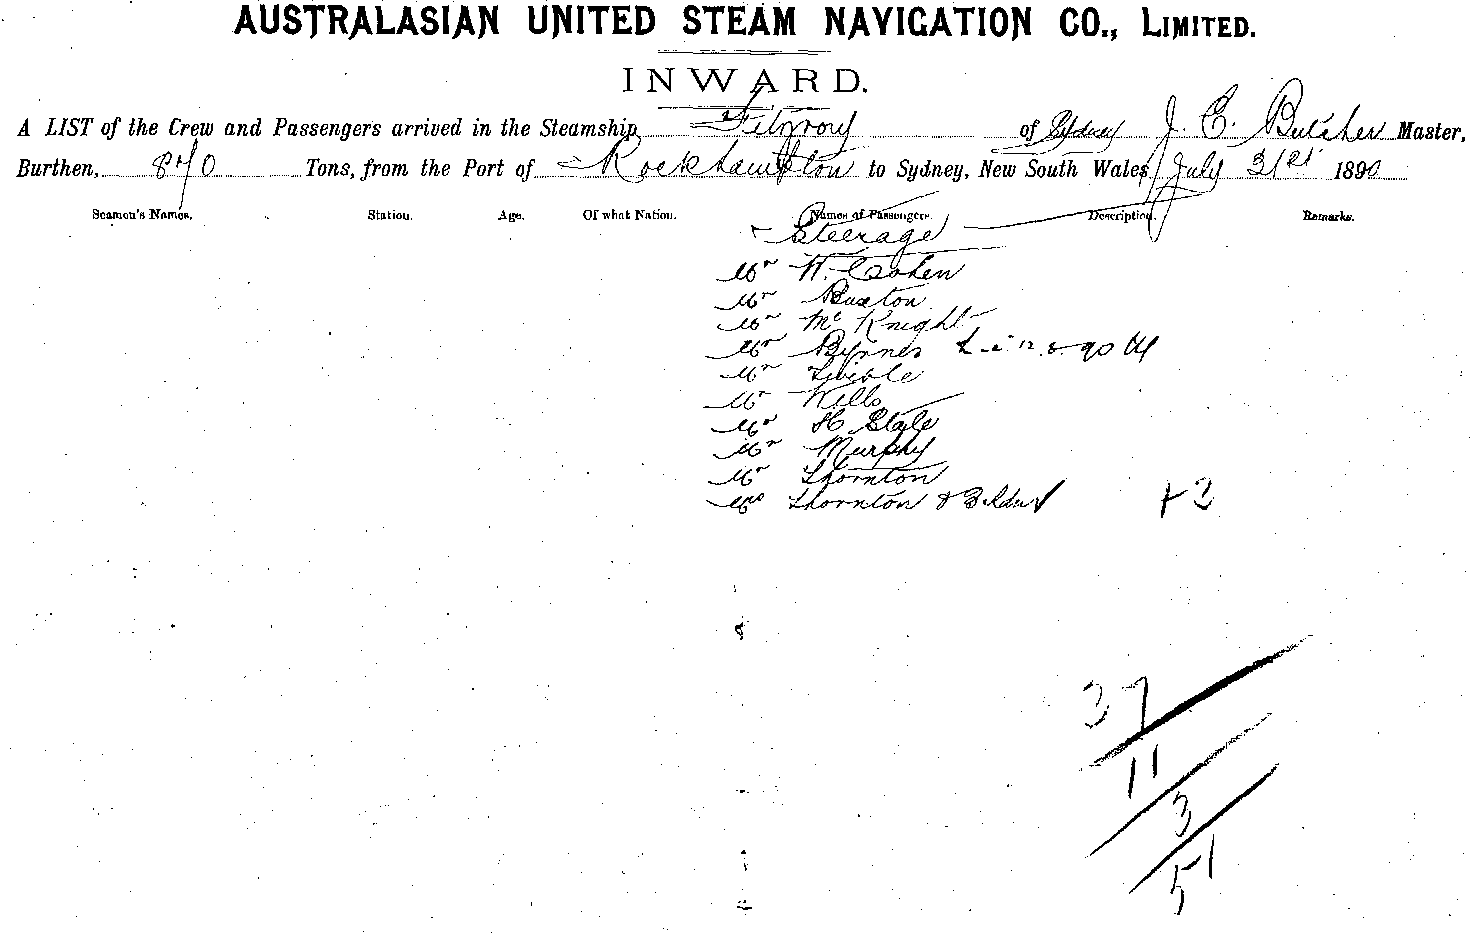 AUSTRALASIAN UNITED STEAM NAVIGATION CO., LIMITED.
INWARD.
A LIST of the Crew and Passengers arrived in the Steamship Fitzroy of Sydney J. C. Butcher Master,
Burthen, 870 Tons, from the Port of Rockhampton to Sydney, New South Wales, July 31st 1890
Seamen's Names. Station. Age. Of what Nation. Names of Passengers. Description. Remarks.
Steerage
Mr W. Cohen
Mr Buxton
Mr McKnight
Mr Byrnes
Mr
Mr Wills
Mr H
Mr Murphy
Mr Thornton
Mrs Thornton & +3
37
11
3
51